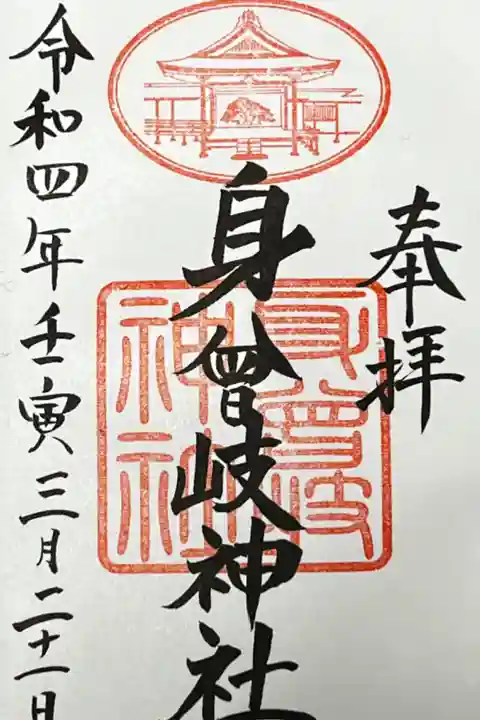 奉拝
身曾岐神社
身曾岐
神社
令和四年壬寅三月二十一日